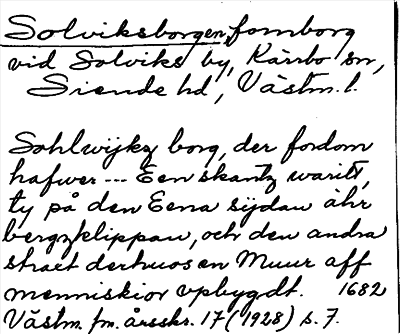 Solviksborgen, fornborg
vid Solviks by, Kärrbo sn,
Siende hd, Västm. l.
Sohlwijkz borg, der fordom
hafwer --- Een skantz waritt,
ty på den Eena sijdan ähr
bergzklippan, och den andra
straet derhuos en Muur aff
menniskior vpbygdt. 1682
Västm. fm. årsskr. 17 (1928) s. 7.